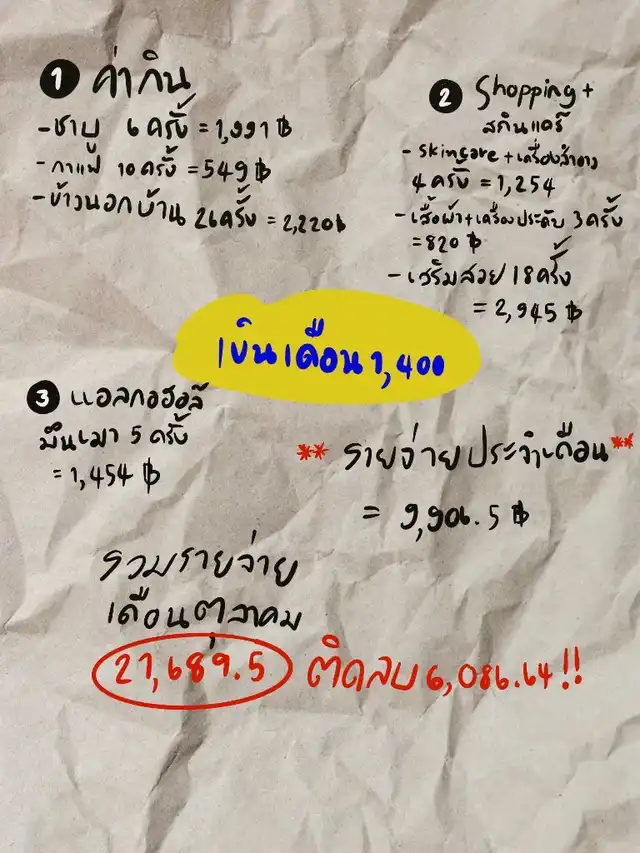 1 ค่ากิน
-ชาบู 6 ครั้ง = 1,991 ฿
-กาแฟ 10 ครั้ง = 549 ฿
-ข้าวนอกบ้าน 26 ครั้ง = 2,220 ฿
2 Shopping +
สกินแคร์
- skincare + เครื่องสำอาง
4 ครั้ง = 1,254
- เสื้อผ้า + เครื่องประดับ 3 ครั้ง
= 820 ฿
- เสริมสวย 18 ครั้ง
= 2,945 ฿
เงินเดือน 1,400
3 แอลกอฮอล์
มึนเมา 5 ครั้ง
= 1,454 ฿
** รายจ่ายประจำเดือน **
= 9,906.5 ฿
รวมรายจ่าย
เดือนตุลาคม
21,689.5 ติดลบ 6,086.64!!